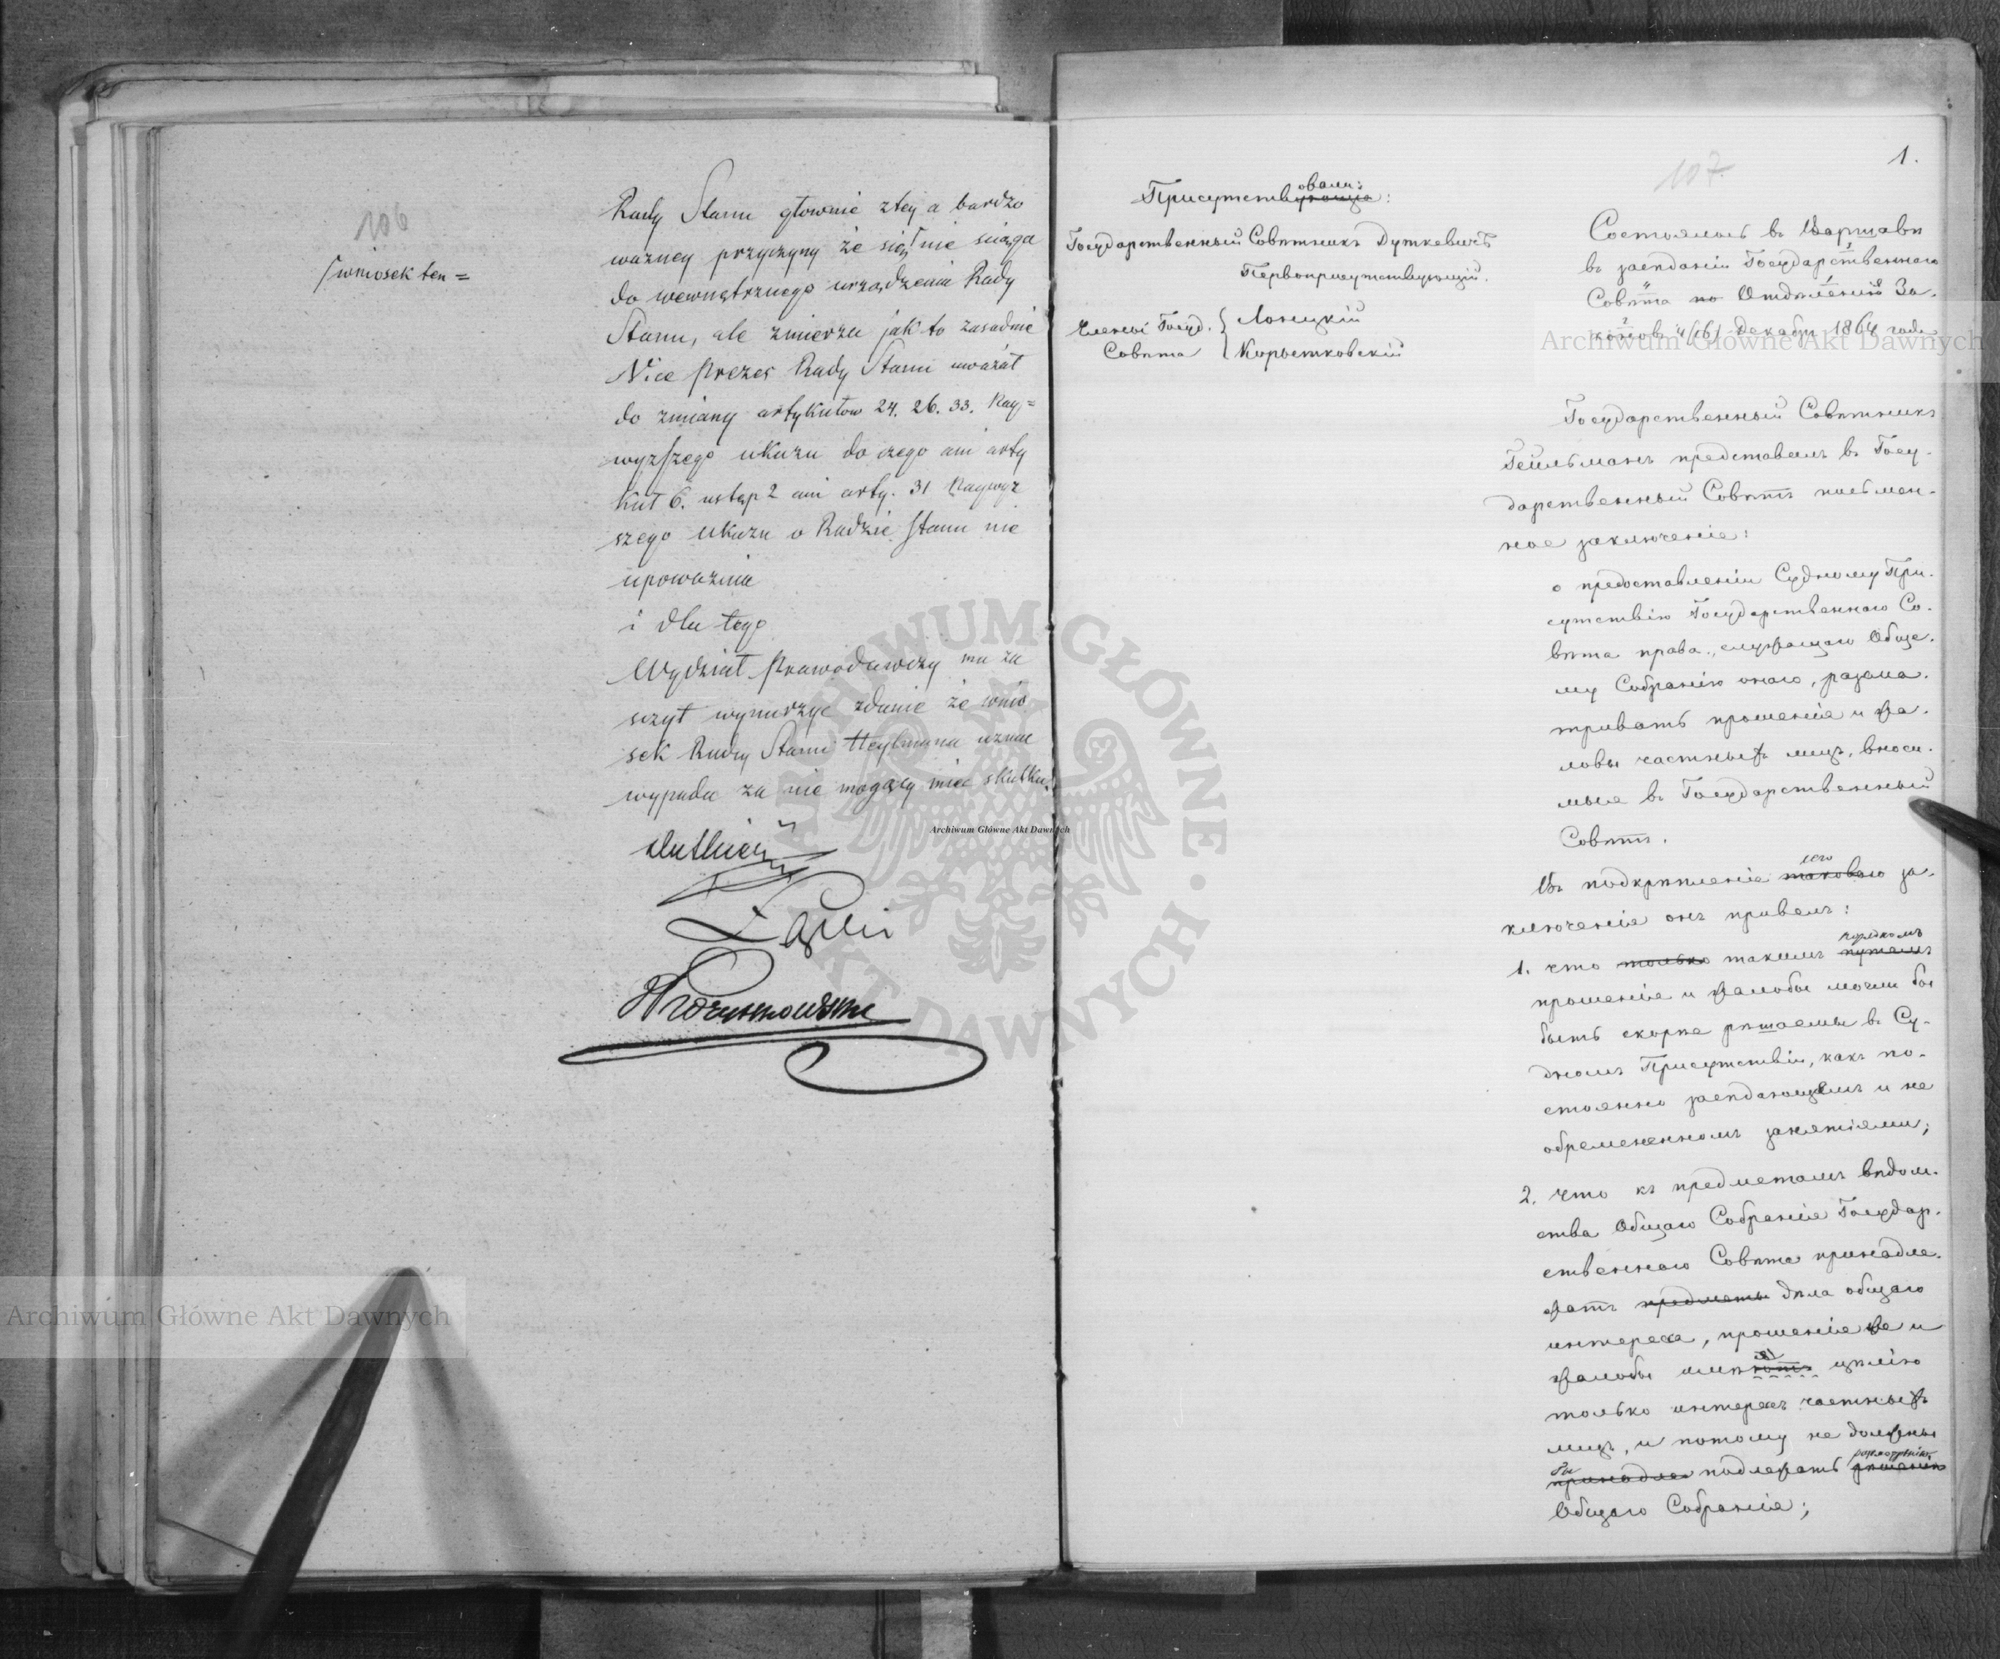 106
wniosek ten=
Rady Stanu głownie z tey a bardzo
ważney przyczyny że się nie sciąga
do wewnętrznego urządzenia Rady
Stanu, ale zmierza jak to zasadnie
Vice Prezes Rady Stanu uważał
do zmiany artykułow 24. 26. 33. Nay=
wyższego ukazu do czego ani arty
kuł 6. ustęp 2 ani arty. 31 Naywyż
szego Ukazu o Radzie Stanu nie
upoważnia
i dla tego
Wydział Prawodawczy ma za
szczyt wynurzyć zdanie że wnio
sek Radcy Stanu Heylmana uznac
wypada za nie mogący mieć skutku.
107
1.
Присутствующіе овали:
Государственный Совѣтникъ Дуткевичъ
Первоприсутствующій.
Члены Госуд.
Совѣта
Лонцкій
Корытковскій
Состоялось въ Варшавѣ
въ засѣданіи Государственнаго
Совѣта по Отдѣленію За-
коновъ 4/16 Декабря 1864 года
Государственный Совѣтникъ
Гейльманъ представилъ въ Госу-
дарственный Совѣтъ письмен-
ное заключеніе:
о предоставленіи Судному При-
сутствію Государственнаго Со-
вѣта права, служащаго Обще-
му Собранію онаго, разсма-
тривать прошенія и жа-
лобы частныхъ лицъ, вноси-
мыя въ Государственный
Совѣтъ.
Въ подкрѣпленіе таковаго сего за-
ключенія онъ привелъ:
1. что только такимъ путемъ порядкомъ
прошенія и жалобы могли бы
быть скорѣе рѣшаемы въ Су-
дномъ Присутствіи, какъ по-
стоянно засѣдающемъ и не
обремененномъ занятіями;
2. что къ предметамъ вѣдом-
ства Общаго Собранія Государ-
ственнаго Совѣта принадле-
жатъ предметы дѣла общаго
интереса, прошенія же и
жалобы имѣютъ цѣлію
только интересъ частныхъ
лицъ, и потому не должны
бы принадле подлежать рѣшенію разсмотрѣнію
Общаго Собранія;
Archiwum Główne Akt Dawnych
Archiwum Główne Akt Dawnych
Archiwum Główne Akt Dawnych
ARCHIWUM GŁÓWNE AKT DAWNYCH